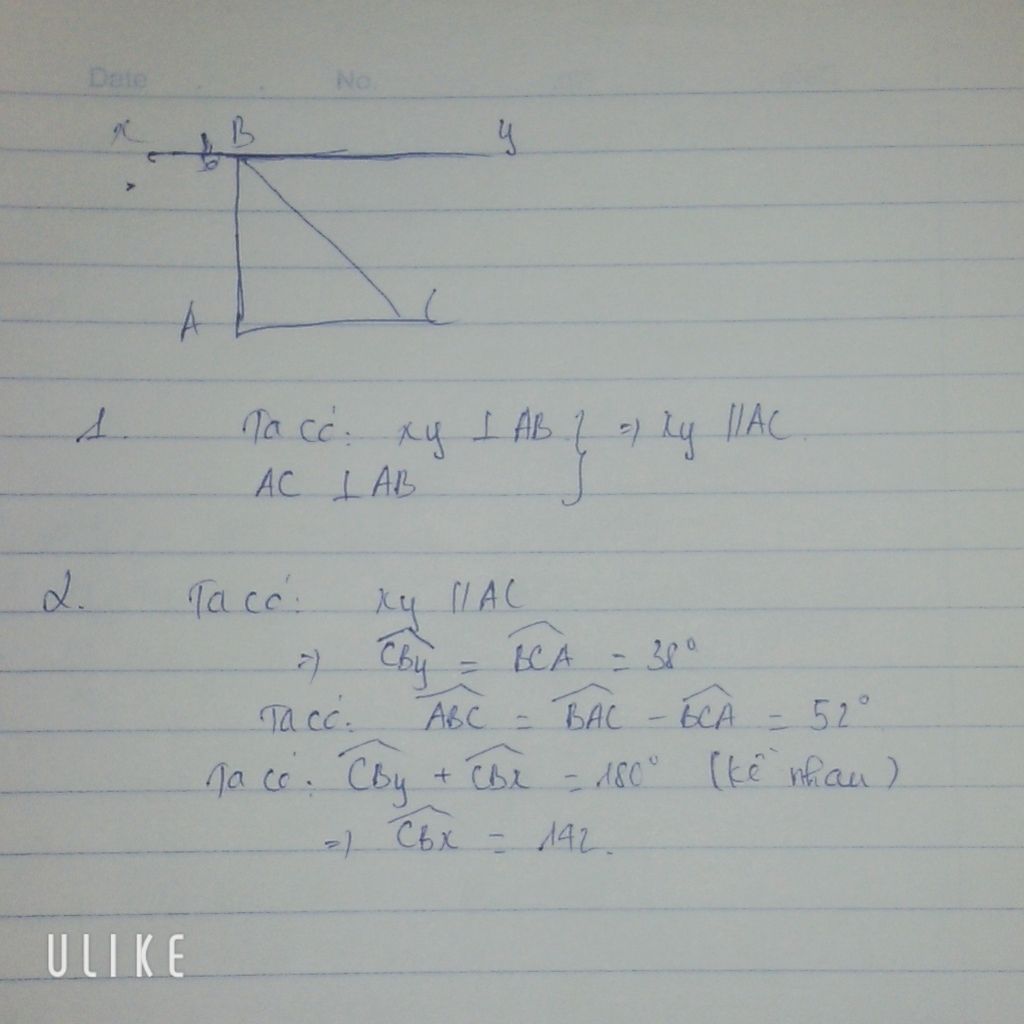 Date No.
x B y
A C
1. Ta có: xy ⊥ AB } => xy // AC.
AC ⊥ AB
2. Ta có: xy // AC
=> CBy = BCA = 38°
Ta có: ABC = BAC - BCA = 52°
Ta có: CBy + CBx = 180° (kề nhau)
=> CBx = 142.
ULIKE